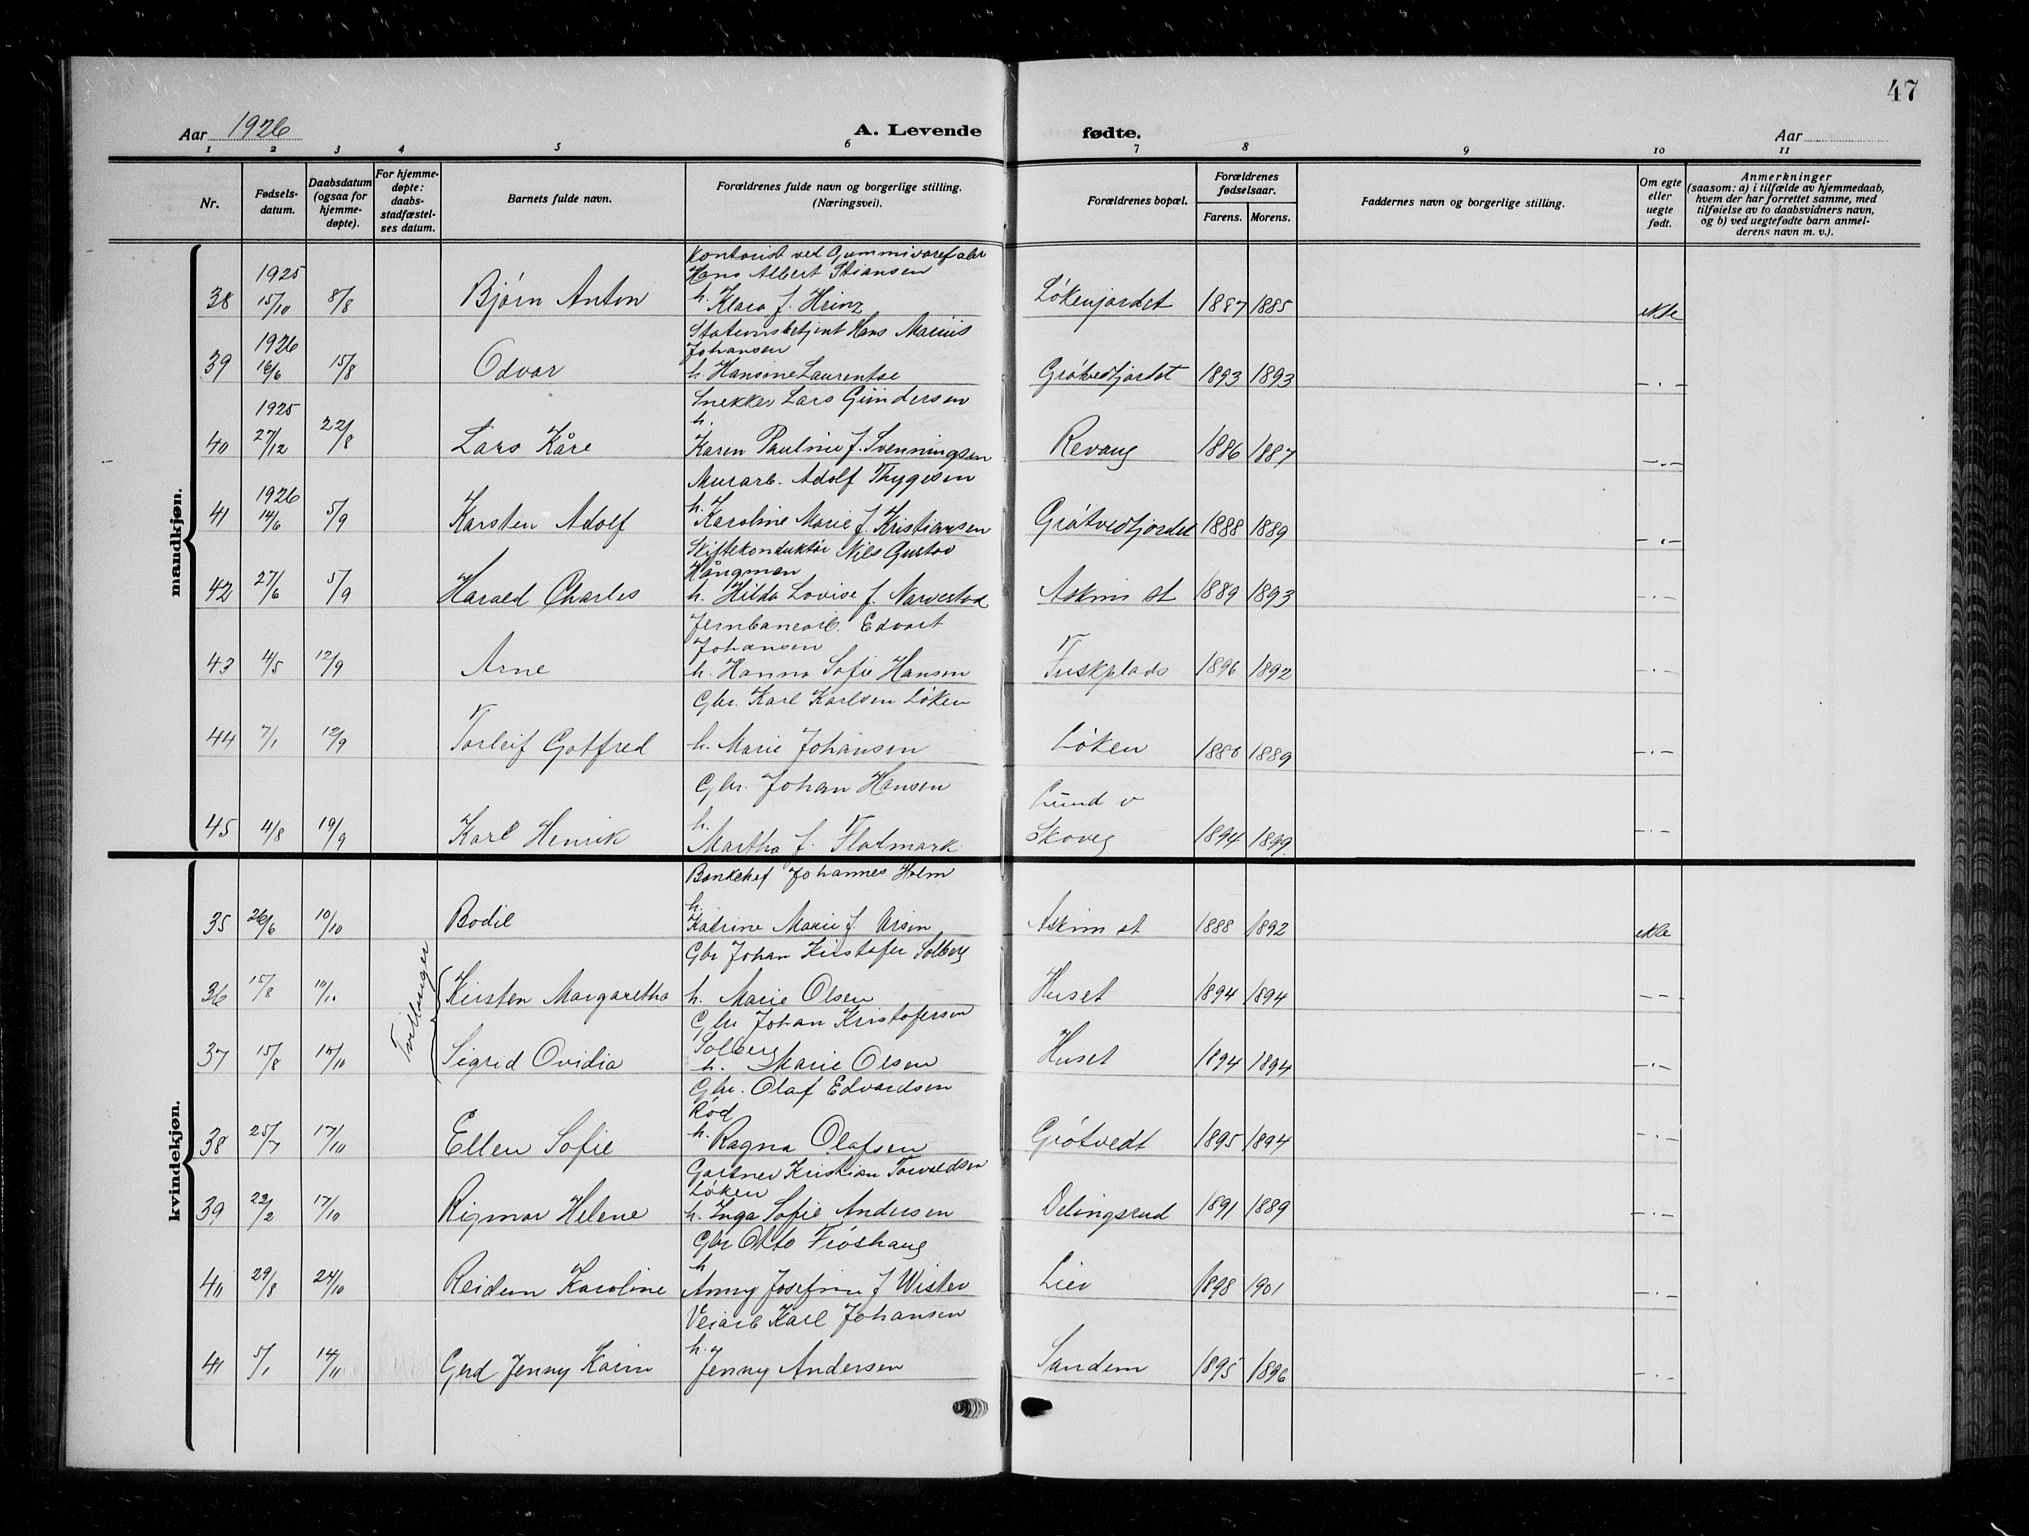 47
Aar 1926
A. Levende fødte.
Aar
1 2 3 4 5 6 7 8 9 10 11
Nr.
Fødsels-
datum.
Daabsdatum
(ogsaa for
hjemme-
døpte).
For hjemme-
døpte:
daabs-
stadfæstel-
ses datum.
Barnets fulde navn.
Forældrenes fulde navn og borgerlige stilling.
(Næringsvei).
Forældrenes bopæl.
Forældrenes
fødselsaar.
Farens. Morens.
Faddernes navn og borgerlige stilling.
Om egte
eller
uegte
født.
Anmerkninger
(saasom: a) i tilfælde av hjemmedaab,
hvem der har forrettet samme, med
tilføielse av to daabsvidners navn,
og b) ved uegtefødte barn anmel-
derens navn m. v.).
mandkjøn.
Kontorist ved Gummivarefabr
1925 Hans Albert Stiansen
38 15/10 8/8 Bjørn Anton h. Klara f. Heinz Løkenjordet 1887 1885 ekte
Stationsbetjent Hans Marius
1926 Johansen
39 16/6 15/8 Odvar h. Hansine Laurentse Grøtvedtjordet 1893 1893 -.-
1925 Snekker Lars Gundersen
h.
40 27/12 22/8 Lars Kåre Karen Pauline f. Svenningsen Revaug 1886 1887 -.-
Murarb. Adolf Thygesen
1926
41 14/6 5/9 Karsten Adolf h. Karoline Marie f. Kristiansen Grøtvedtjordet 1888 1889 -.-
Skiftekonduktør Nils Gustav
Hångman
42 27/6 5/9 Harald Charles h. Hilda Lovise f. Narvestad Askim st 1889 1893
Jernbanearb. Edvart
Johansen
43 4/5 12/9 Arne h. Hanna Sofie Hansen Fuskplads 1896 1892 -.-
Gbr. Karl Karlsen Løken
44 7/1 12/9 Torleif Gotfred h. Marie Johansen Løken 1880 1889 -.-
Gbr. Johan Hansen Lund v
h.
45 4/8 19/9 Karl Henrik Martha f. Flatmark Skoveg 1894 1899 -.-
kvindekjøn.
Bankchef Johannes Holm
h.
35 26/6 10/10 Bodil Katrine Marie f Ursin Askim st 1888 1892 ekte
Gbr Johan Kristofer Solberg
Tvillinger
36 15/8 10/10 Kirsten Margaretha h. Marie Olsen Huset 1894 1894 ---
Gbr Johan Kristofersen
Solberg
37 15/8 10/10 Sigrid Ovidia h. Marie Olsen Huset 1894 1894 -.-
Gbr. Olaf Edvardsen
Rød
38 25/7 17/10 Ellen Sofie h. Ragna Olafsen Grøtvedt 1895 1894 -.-
Gartner Kristian Torvaldsen
Løken
39 22/2 17/10 Rigmor Helene h. Inga Sofie Andersen Delingsrud 1891 1889 -.-
Gbr Otto Frøshaug
h
40 29/8 24/10 Reidun Karoline Anny Josefine f Wister Lier 1898 1901 -.-
Veiarb Karl Johansen
h.
41 5/1 14/11 Gerd Jenny Karin Jenny Andersen Sandem 1895 1896 -.-